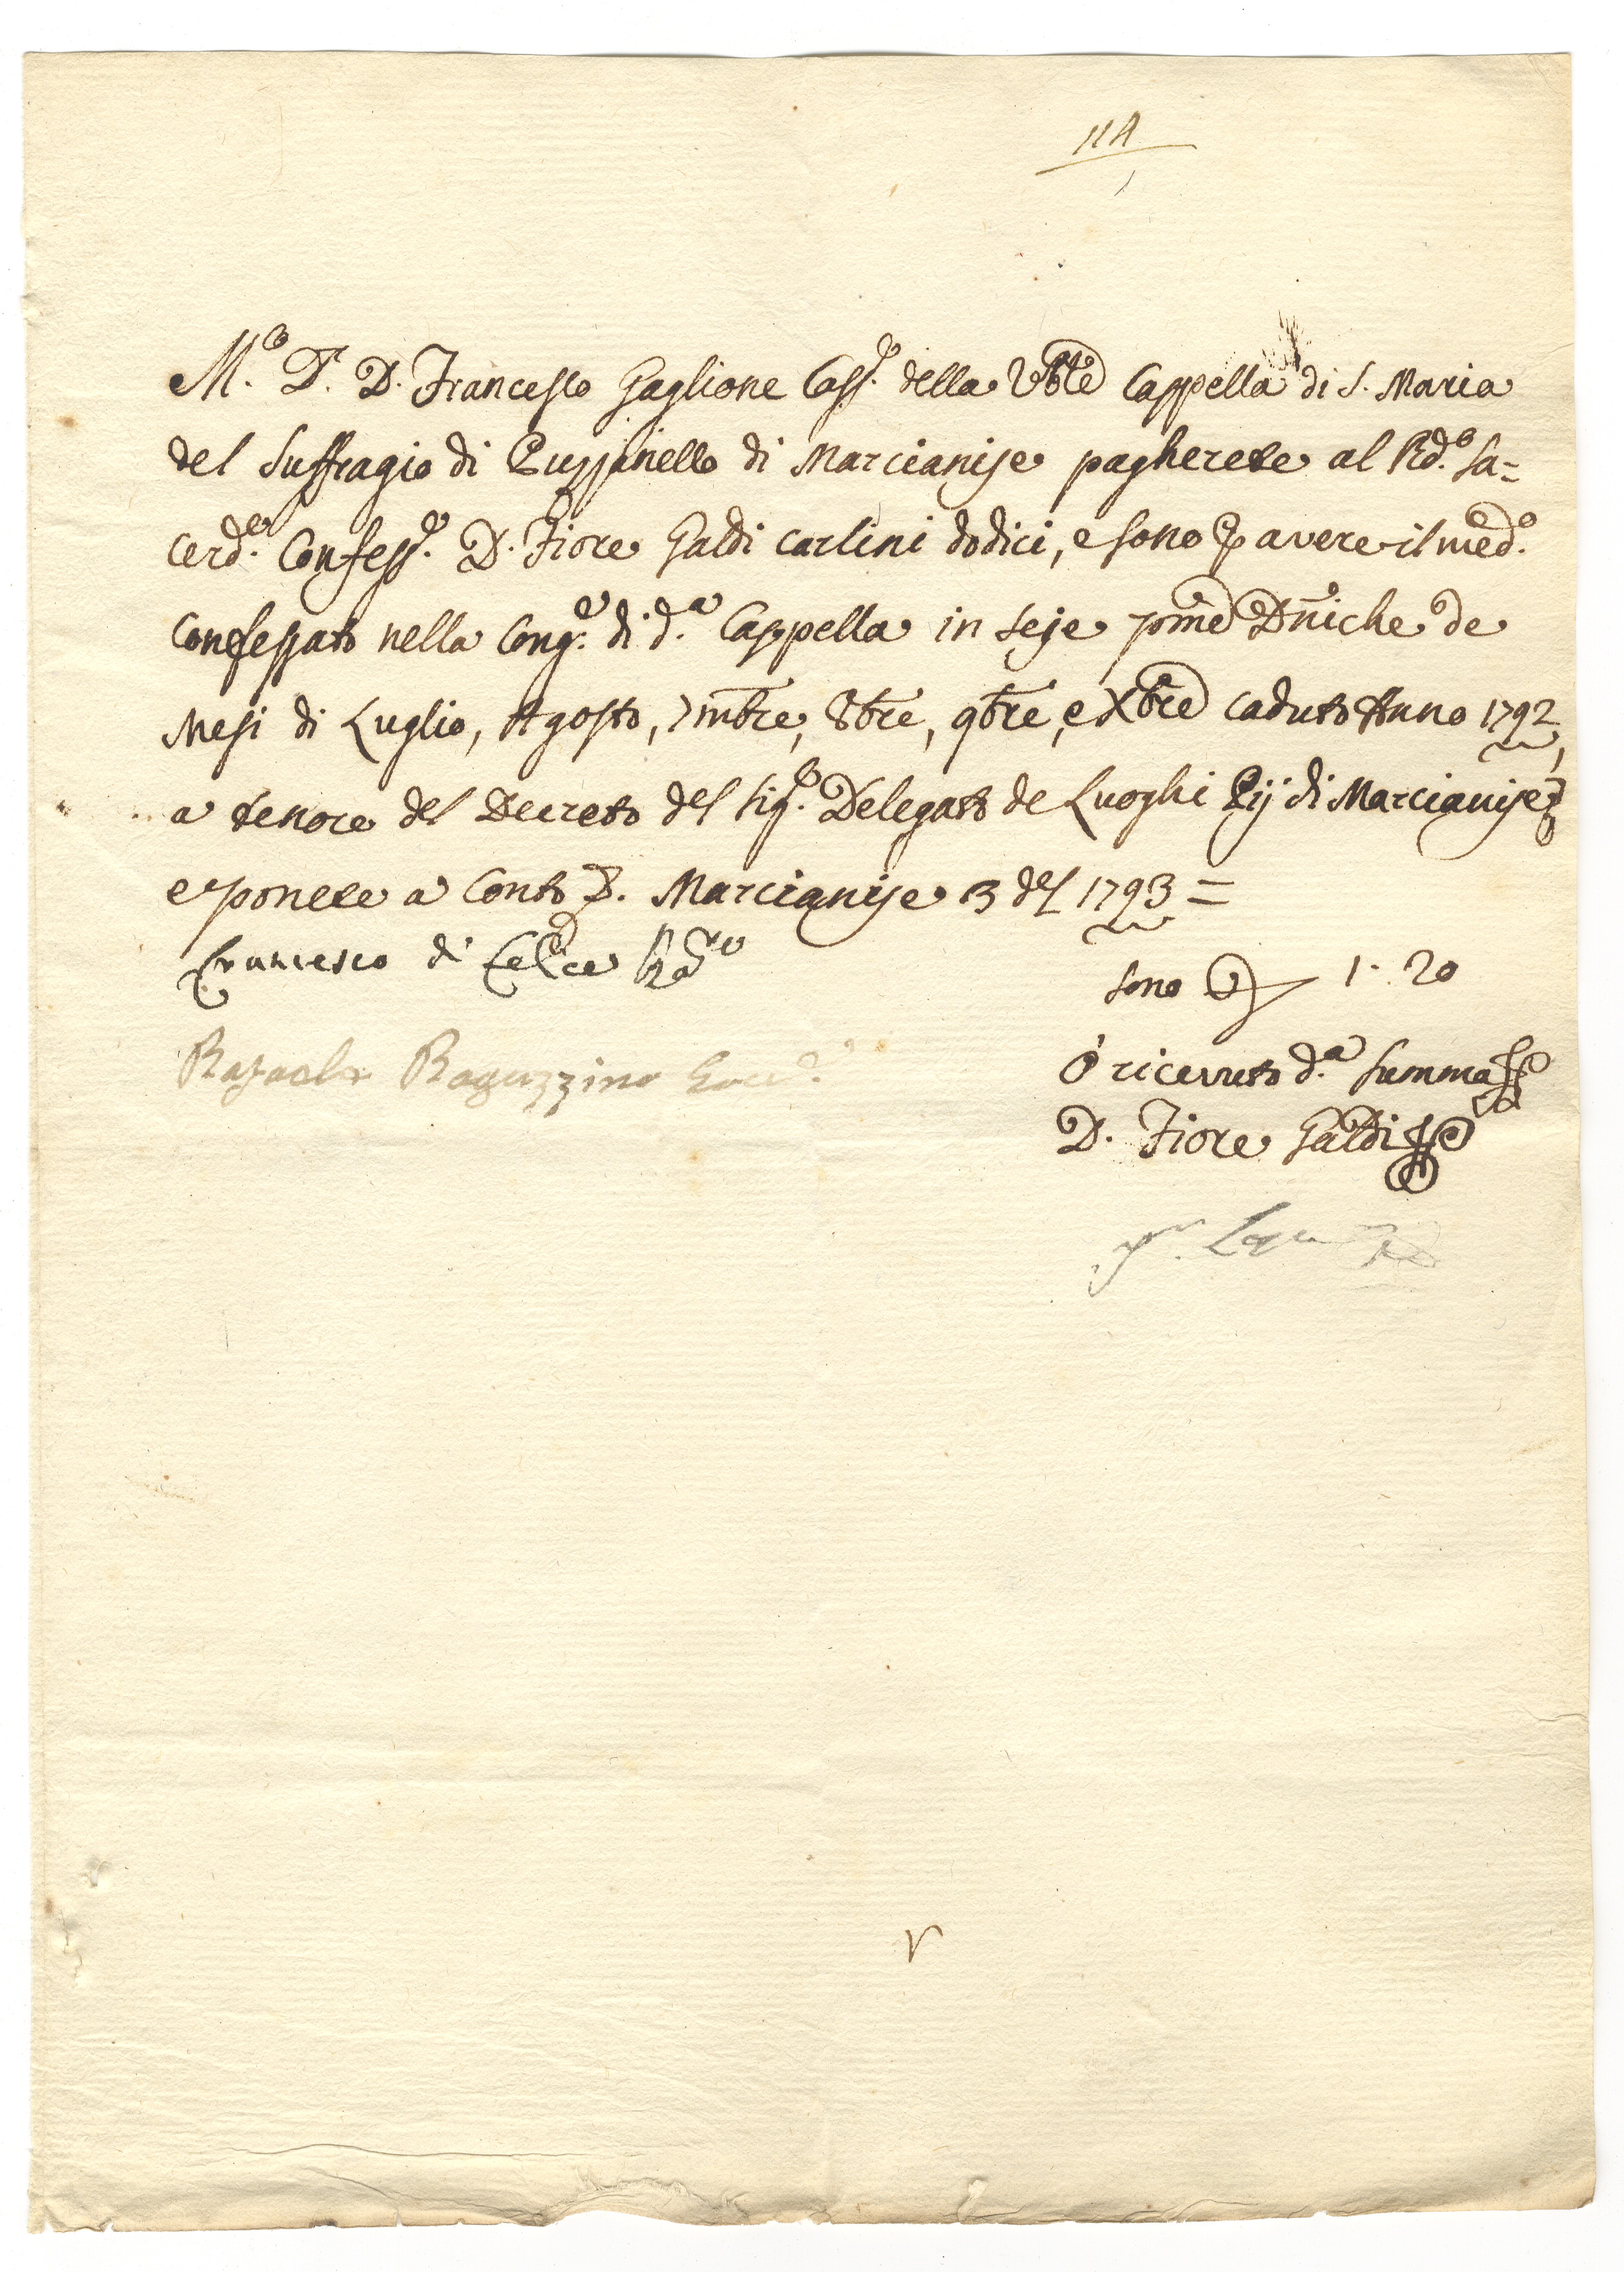 11A
M.º D. Francesco Gaglione Cass.e della Vble Cappella di S. Maria
del Suffragio di Puzzaniello di Marcianise pagherete al Rd.º Sa=
cerd.e Confess.e D. Fiore Galdi carlini dodici, e sono p avere il med.º
Confessato nella Cong.e di d.a Cappella in seje pme Dniche de
Mesi di Luglio, Agosto, 7mbre, 8bre, 9bre, e Xbre caduto Anno 1792,
a tenore del Decreto del Sig.e Delegato de Luoghi Pij di Marcianise
e ponete a Conto. Marcianise 3 del 1793 =
Francesco di Felice
sono 1. 20
Rafaele Raguzzino
ò ricevuto d.a summa
D. Fiore Galdi